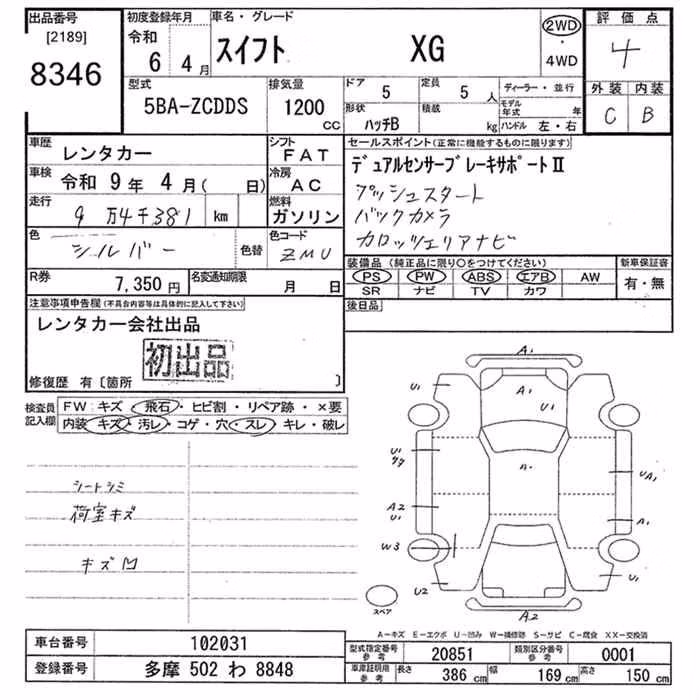 出品番号
[2189]
8346
初度登録年月
令和
6 4 月
車名・グレード
スイフト XG
2WD
・
4WD
評価点
4
外装 内装
C B
型式
5BA-ZCDDS
排気量
1200
CC
ドア
5
定員
5 人
形状
ハッチB
積載
kg
ディーラー・並行
モデル年式 年
ハンドル 左・右
車歴
レンタカー
シフト
FAT
車検
令和 9 年 4 月 ( 日)
冷房
AC
走行
9 万 4 千 381 km
燃料
ガソリン
色
シルバー
色替
色コード
ZMU
R券
7,350 円
名変通知期限
月 日
セールスポイント(正常に機能するものに限ります)
デュアルセンサーブレーキサポートⅡ
プッシュスタート
バックカメラ
カロッツェリアナビ
装備品(純正品に限り○をつけてください)
新車保証書
PS PW ABS エアB AW
SR ナビ TV カワ
有・無
後日品
注意事項申告欄(不具合内容等は具体的に記入して下さい)
レンタカー会社出品
初出品
修復歴 有〔箇所 〕
検査員記入欄
FW:キズ・飛石・ヒビ割・リペア跡・×要
内装 キズ・汚レ・コゲ・穴・スレ・キレ・破レ
シートシミ
荷室キズ
キズ凹
A1
U1
A1
U1
U1
A1
UA1
A2
U1
A1
W3
U2
U1
スペア
A2
A-キズ E-エクボ U-凹み W-補修跡 S-サビ C-腐食 XX-交換済
車台番号
102031
登録番号
多摩 502 わ 8848
型式指定番号
参考
20851
類別区分番号
参考
0001
車庫証明用
参考
長さ 386 cm
幅 169 cm
高さ 150 cm